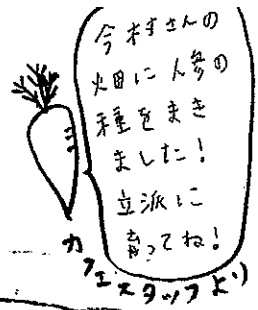 今村さんの
畑に人参の
種をまき
ました!
立派に
育ってね!
カフェスタッフより